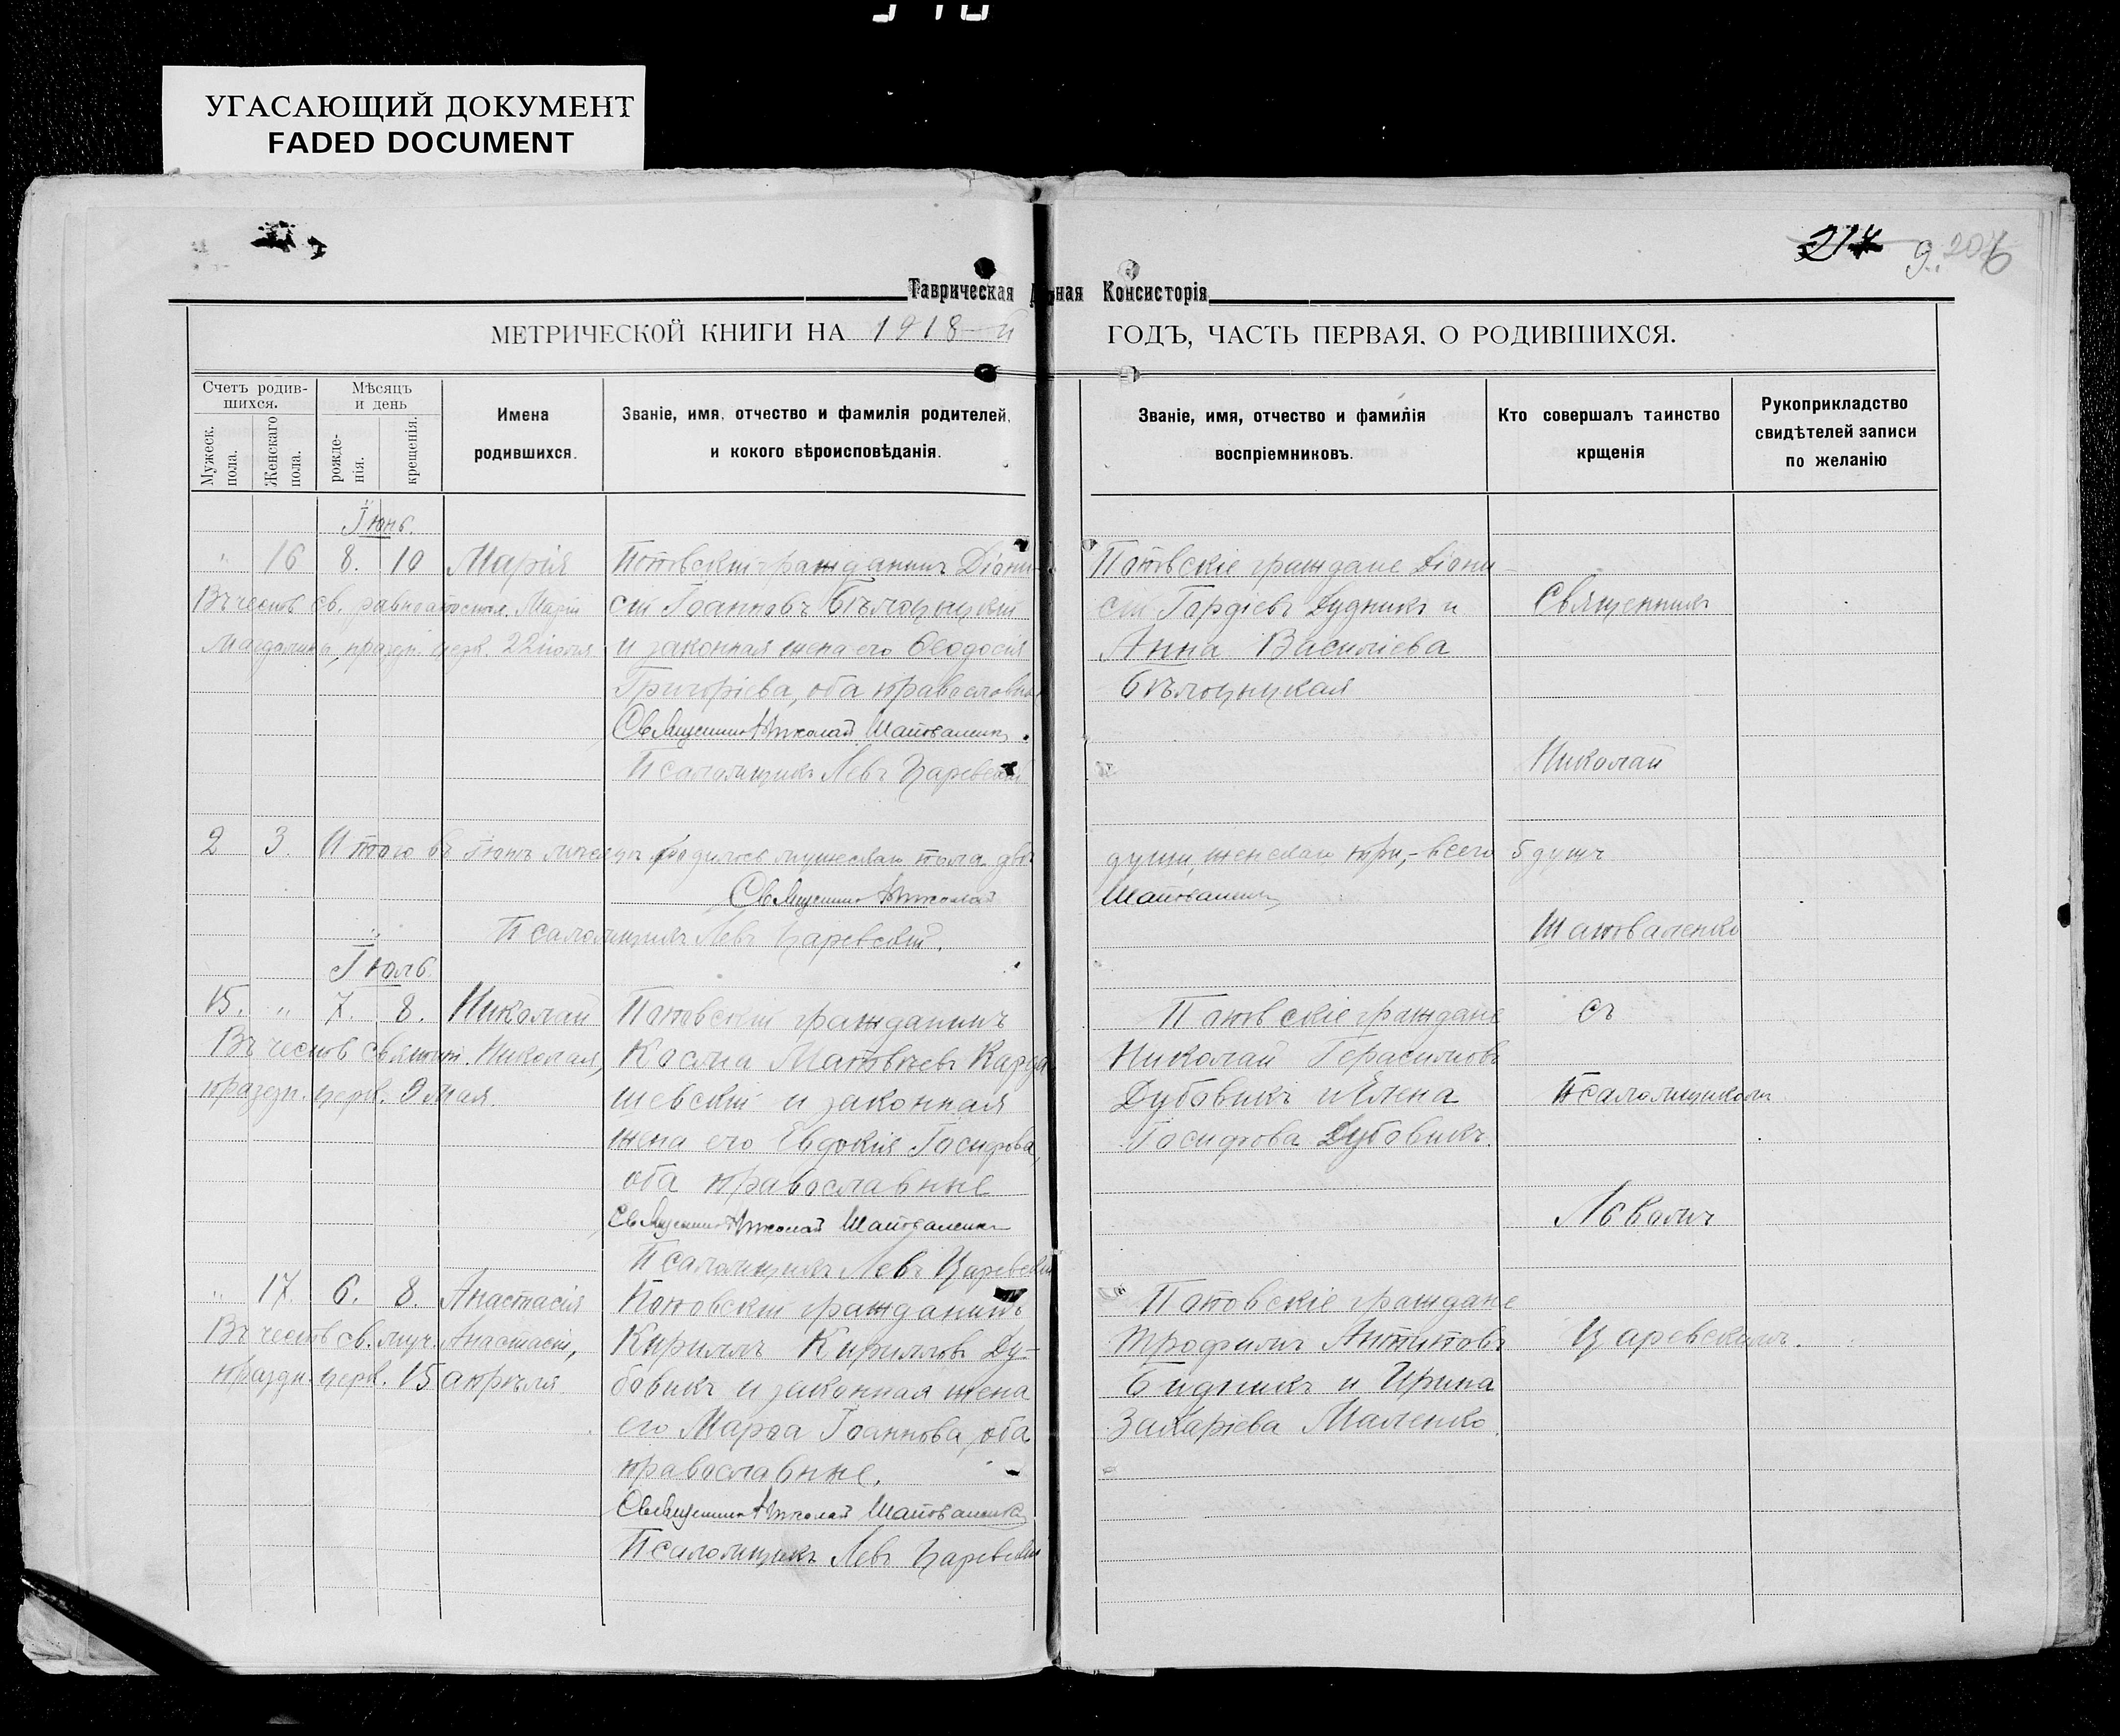 УГАСАЮЩИЙ ДОКУМЕНТ
FADED DOCUMENT
217 9. 206
Таврическая ная Консисторія
МЕТРИЧЕСКОЙ КНИГИ НА 1918-й
ГОДЪ, ЧАСТЬ ПЕРВАЯ, О РОДИВШИХСЯ.
Счетъ родив-
шихся.
Мужеск. пола.
Женскаго пола.
Мѣсяцъ
и день
рожде-
нія.
крещенія.
Имена
родившихся.
Званіе, имя, отчество и фамилія родителей,
и кокого вѣроисповѣданія.
Званіе, имя, отчество и фамилія
воспріемниковъ.
Кто совершалъ таинство
крщенія
Рукоприкладство
свидѣтелей записи
по желанію
Іюнь.
" 16 8. 10 Марія
Въ честь св. равноапостол. Маріи
Магдалины, праздн. церк. 22 іюля
Поповскій гражданинъ Діони-
сій Іоанновъ Бѣлоцицкій
и законная жена его Ѳеодосія
Григоріева, оба православные
Священникъ Николай Шаповаленко.
Псаломщикъ Левъ Царевскій
Поповскіе граждане Діони-
сій Гордіевъ Дудникъ и
Анна Василіева
Бѣлоцицкая
Священникъ
Николай
2 3. Итого въ Іюнѣ мѣсяцѣ родилось мужескаго пола двѣ
души, женскаго три,- всего 5 душъ
Священникъ Николай
Шаповаленко
Псаломщикъ Левъ Царевскій.
Шаповаленко
Іюль.
15. " 7. 8. Николай
Въ честь святит. Николая,
праздн. церк. 9 мая.
Поповскій гражданинъ
Косма Матвѣевъ Карда
шевскій и законная
жена его Евдокія Іосифова,
оба православные
Священникъ Николай Шаповаленко
Псаломщикъ Левъ Царевскій
Поповскіе граждане
Николай Герасимовъ
Дубовикъ и Елена
Іосифова Дубовикъ.
съ
Псаломщикомъ
Львомъ
" 17. 6. 8. Анастасія
Въ честь св. муч. Анастасіи,
праздн. церк. 15 апрѣля.
Поповскій гражданинъ
Кириллъ Кирилловъ Ду-
бовикъ и законная жена
его Марѳа Іоаннова, оба
православные.
Священникъ Николай Шаповаленко
Псаломщикъ Левъ Царевскій
Поповскіе граждане
Трофимъ Антиповъ
Бидникъ и Ирина
Захаріева Маленко.
Царевскимъ.